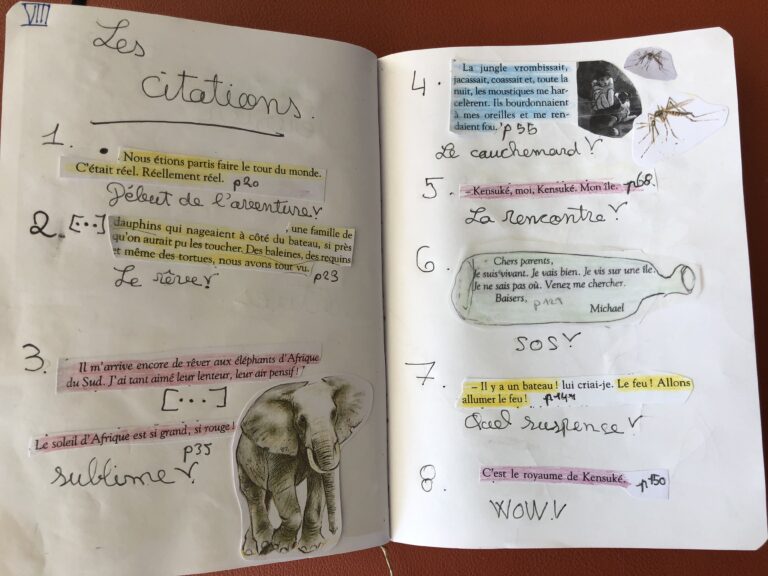 VIII
Les
citations.
1.
Nous étions partis faire le tour du monde.
C'était réel. Réellement réel. p20
Début de l'aventure!
2. [...] , une famille de
dauphins qui nageaient à côté du bateau, si près
qu'on aurait pu les toucher. Des baleines, des requins
et même des tortues, nous avons tout vu. p23
Le rêve!
3. Il m'arrive encore de rêver aux éléphants d'Afrique
du Sud. J'ai tant aimé leur lenteur, leur air pensif !
[...]
Le soleil d'Afrique est si grand, si rouge !
p35
sublime!
4. La jungle vrombissait,
jacassait, coassait et, toute la
nuit, les moustiques me har-
celèrent. Ils bourdonnaient
à mes oreilles et me ren-
daient fou. p55
Le cauchemard!
5. – Kensuké, moi, Kensuké. Mon île. p68
La rencontre!
6 Chers parents,
Je suis vivant. Je vais bien. Je vis sur une île.
Je ne sais pas où. Venez me chercher.
Baisers,
Michael
SOS!
7. – Il y a un bateau ! lui criai-je. Le feu ! Allons
allumer le feu !
Quel suspense!
8. C'est le royaume de Kensuké. p150
WOW!